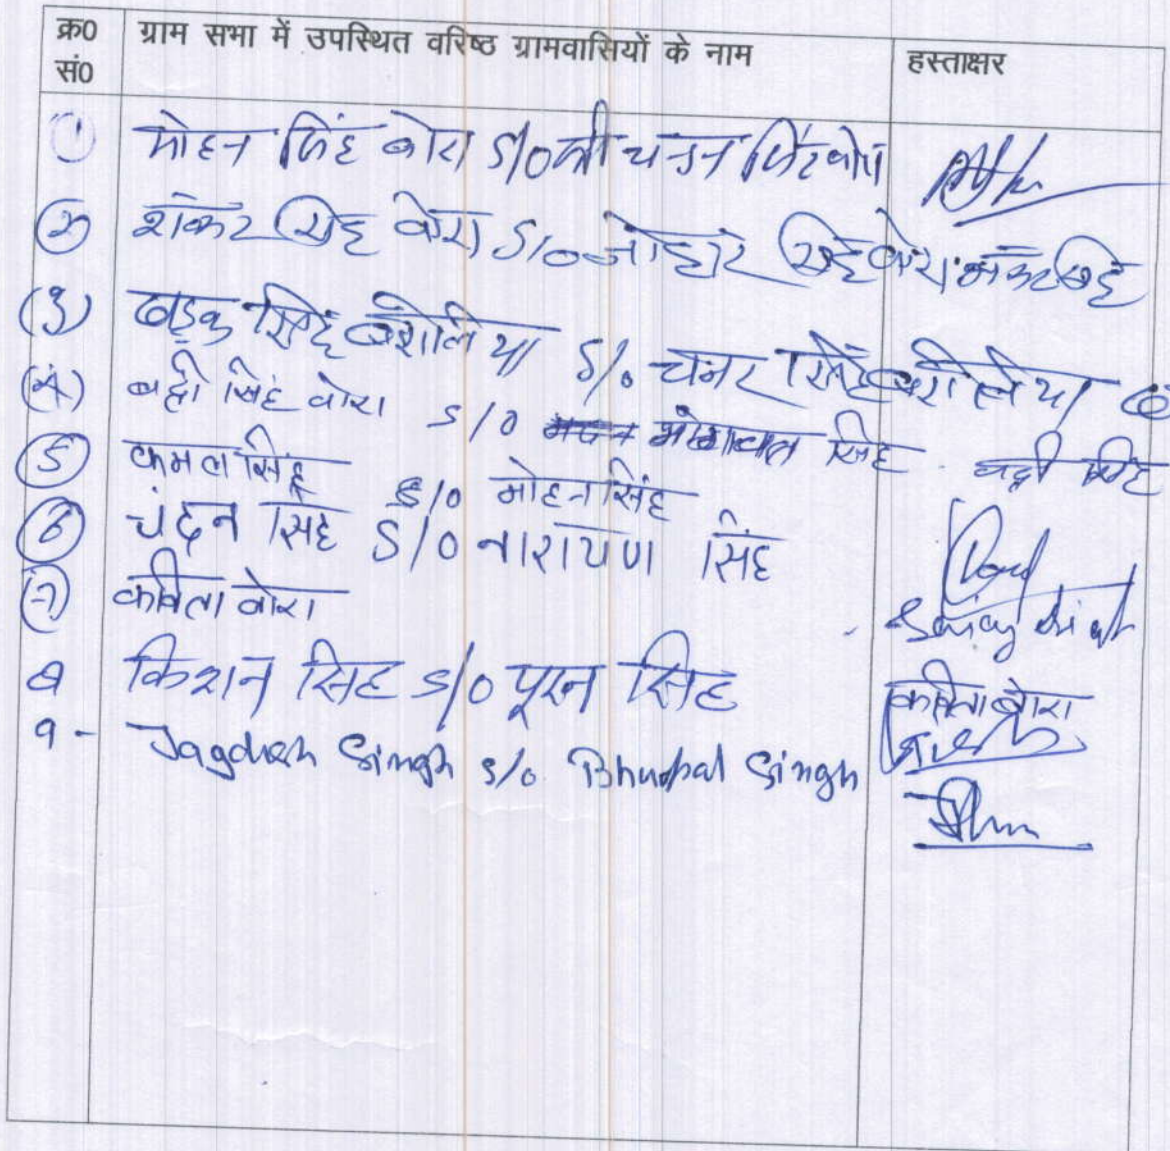 क्र0 सं0 ग्राम सभा में उपस्थित वरिष्ठ ग्रामवासियों के नाम हस्ताक्षर
① मोहन सिंह बोरा S/O श्री चन्दन सिंह बोरा
② शंकर सिंह बोरा S/O जोहार सिंह बोरा शंकर सिंह
(3) खड़क सिंह S/o चंनर सिंह
(4) बद्री सिंह वोरा S/O सिंह बद्री सिंह
⑤ कमल सिंह S/O मोहन सिंह
⑥ चंदन सिंह S/O नारायण सिंह
(7) कविता वोरा
8 किशन सिंह S/O पूरन सिंह कविता बोरा
9- Jagdish Singh S/o. Bhupal Singh